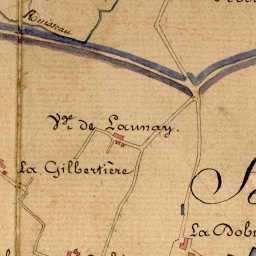 Ruisseau
Vx. de Launay.
La Gilbertière
La Dob